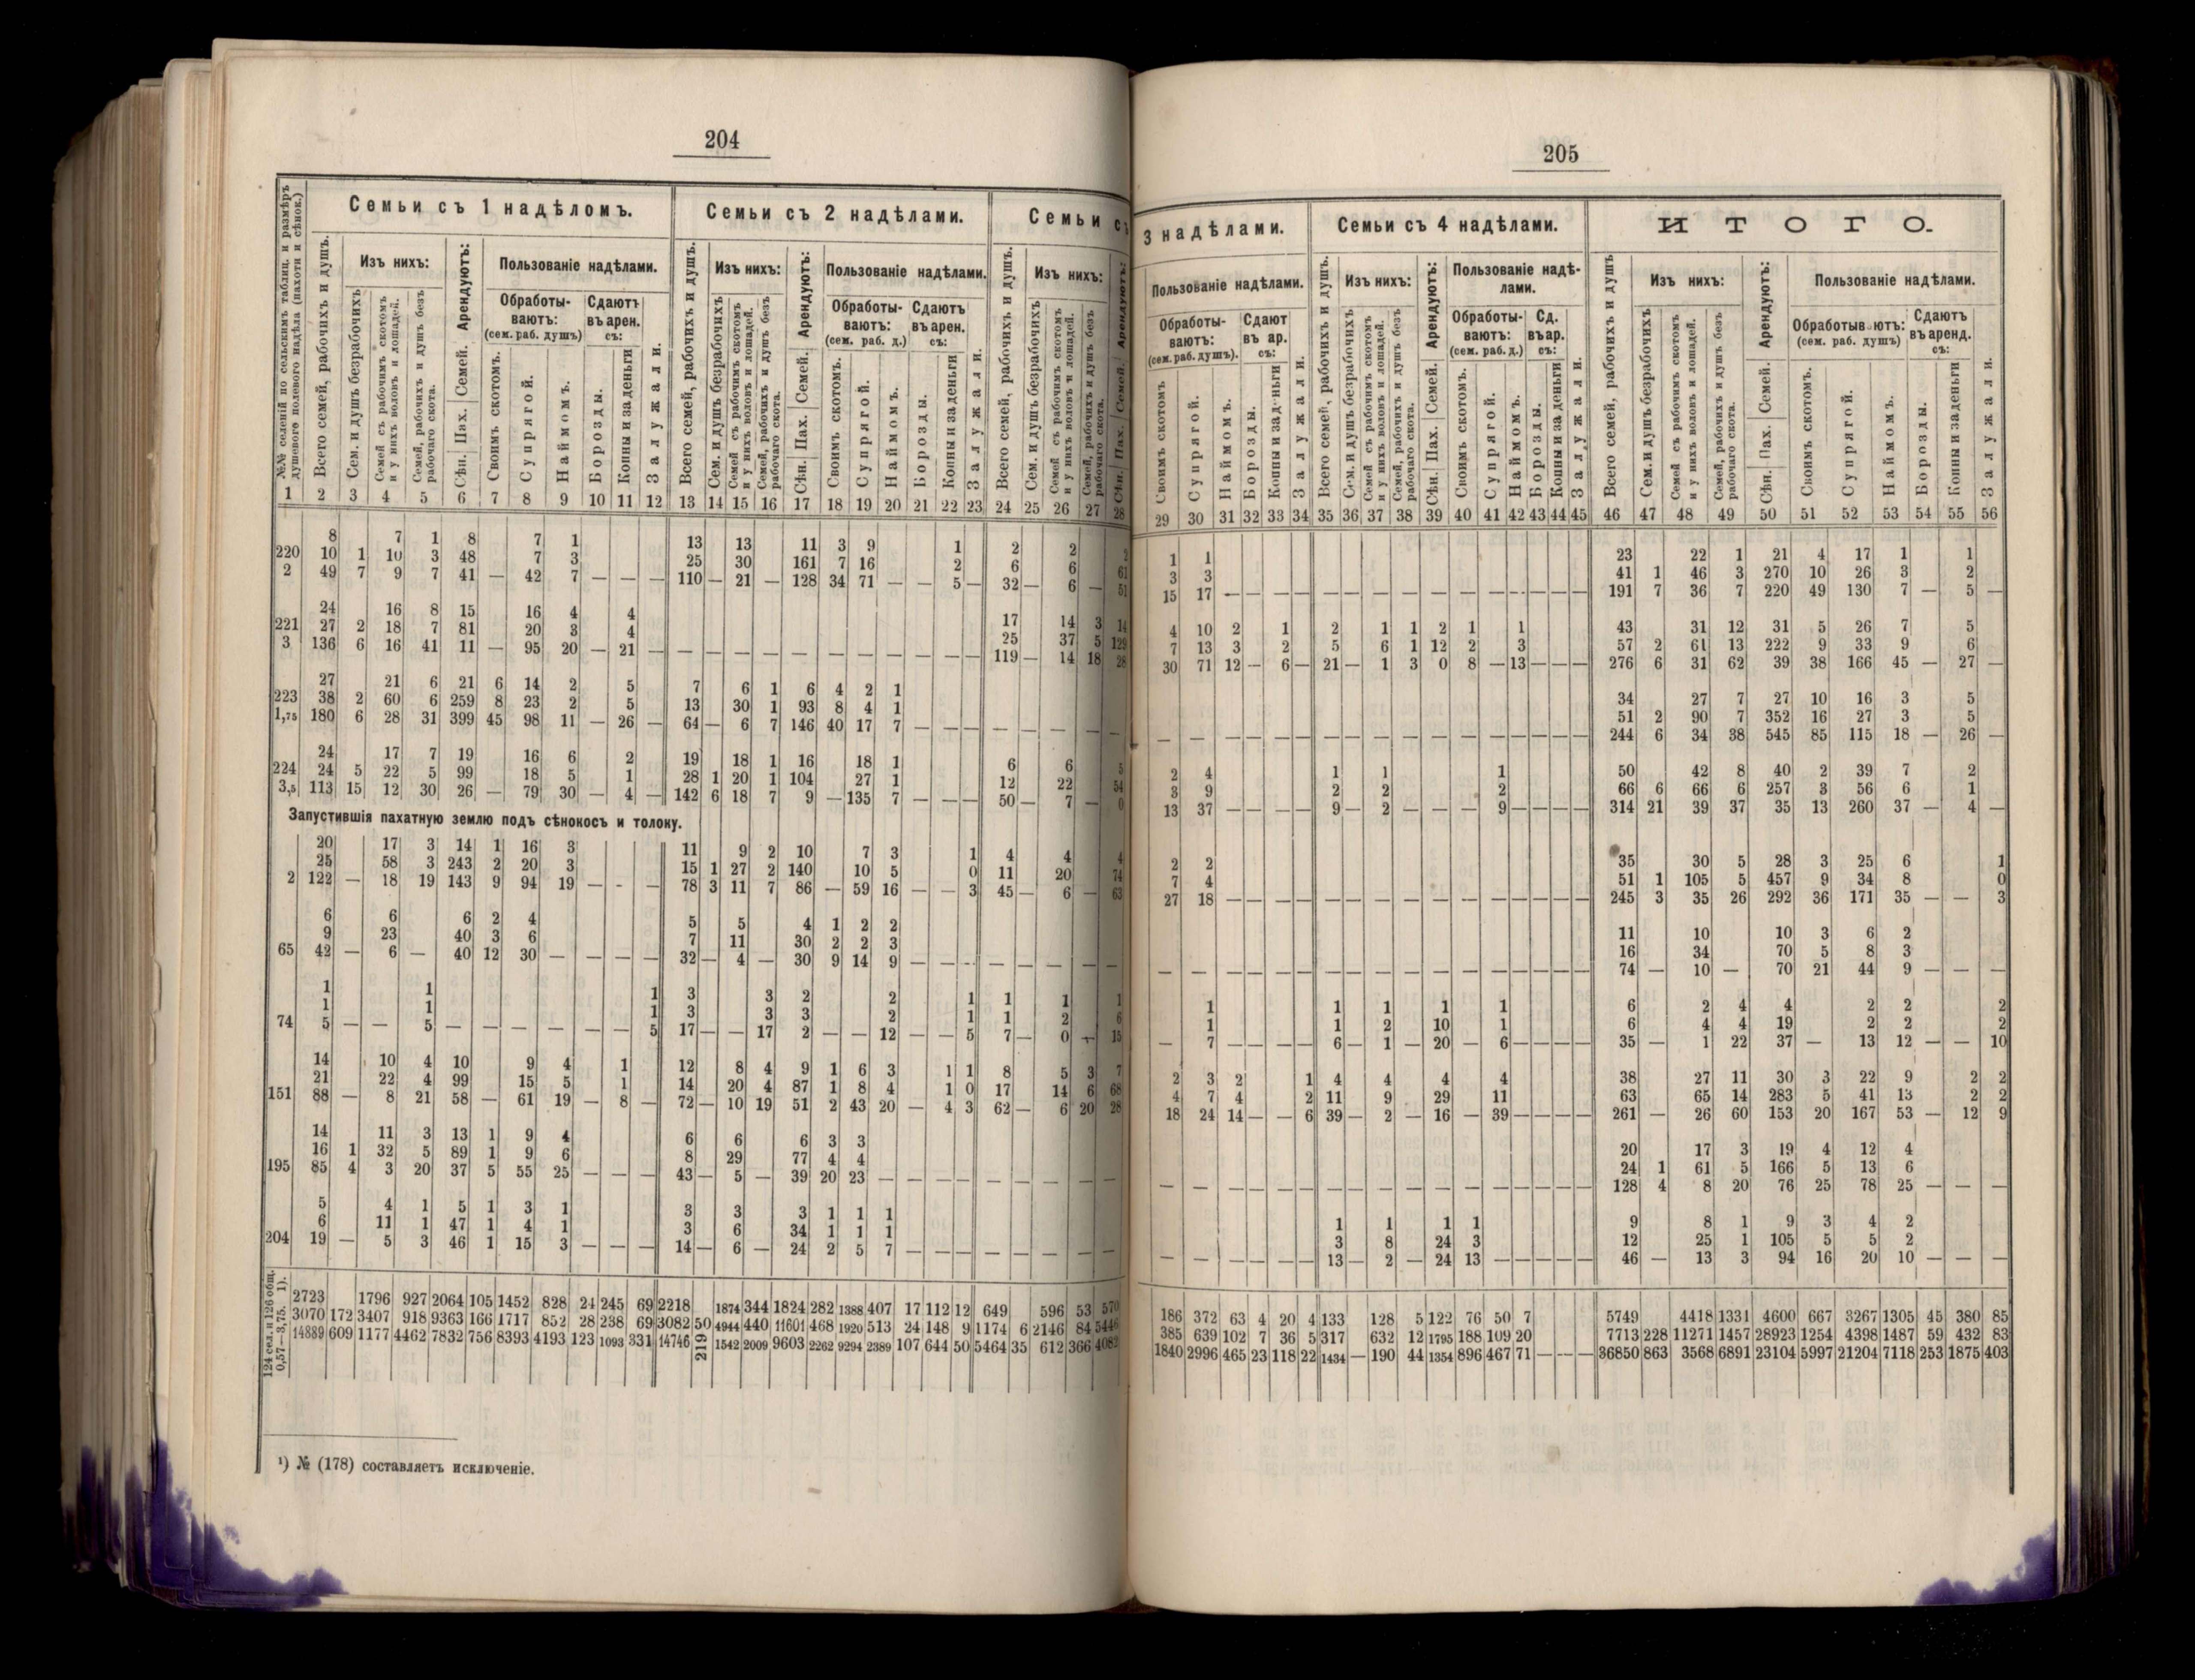 204
Семьи съ 1 надѣломъ. Семьи съ 2 надѣлами. Семьи съ
№№ селеній по сельскимъ таблиц. и размѣръ душевого полевого надѣла (пахоти и сѣнок.)
Всего семей, рабочихъ и душъ.
Изъ нихъ:
Сем. и душъ безрабочихъ
Семей съ рабочимъ скотомъ и у нихъ воловъ и лошадей.
Семей, рабочихъ и душъ безъ рабочаго скота.
Арендуютъ:
Сѣн. Пах. Семей.
Пользованіе надѣлами.
Обработы-
ваютъ:
(сем. раб. душъ)
Сдаютъ
въ арен.
съ:
Своимъ скотомъ.
Супрягой.
Наймомъ.
Борозды.
Копны и за деньги
Залужали.
Всего семей, рабочихъ и душъ.
Изъ нихъ:
Сем. и душъ безрабочихъ
Семей съ рабочимъ скотомъ и у нихъ воловъ и лошадей.
Семей, рабочихъ и душъ безъ рабочаго скота.
Арендуютъ:
Сѣн. Пах. Семей.
Пользованіе надѣлами.
Обработы-
ваютъ:
(сем. раб. д.)
Сдаютъ
въ арен.
съ:
Своимъ скотомъ.
Супрягой.
Наймомъ.
Борозды.
Копны и за деньги
Залужали.
Всего семей, рабочихъ и душъ.
Изъ нихъ:
Сем. и душъ безрабочихъ
Семей съ рабочимъ скотомъ и у нихъ воловъ и лошадей.
Семей, рабочихъ и душъ безъ рабочаго скота.
Арендуютъ:
Сѣн. Пах. Семей.
1 2 3 4 5 6 7 8 9 10 11 12 13 14 15 16 17 18 19 20 21 22 23 24 25 26 27 28
8 7 1 8 7 1 13 13 11 3 9 1 2 2 2
220 10 1 10 3 48 7 3 25 30 161 7 16 2 6 6 61
2 49 7 9 7 41 — 42 7 — — — 110 — 21 — 128 34 71 — — 5 — 32 — 6 — 51
24 16 8 15 16 4 4 17 14 3 14
221 27 2 18 7 81 20 3 4 25 37 5 129
3 136 6 16 41 11 — 95 20 — 21 — — — — — — — — — — — — 119 — 14 18 28
27 21 6 21 6 14 2 5 7 6 1 6 4 2 1
223 38 2 60 6 259 8 23 2 5 13 30 1 93 8 4 1
1,75 180 6 28 31 399 45 98 11 — 26 — 64 — 6 7 146 40 17 7 — — — — — — — —
24 17 7 19 16 6 2 19 18 1 16 18 1 6 6 5
224 24 5 22 5 99 18 5 1 28 1 20 1 104 27 1 12 22 54
3,5 113 15 12 30 26 — 79 30 — 4 — 142 6 18 7 9 — 135 7 — — — 50 — 7 — 0
Запустившія пахатную землю подъ сѣнокосъ и толоку.
20 17 3 14 1 16 3 11 9 2 10 7 3 1 4 4 4
25 58 3 243 2 20 3 15 1 27 2 140 10 5 0 11 20 74
2 122 — 18 19 143 9 94 19 — - — 78 3 11 7 86 — 59 16 — — 3 45 — 6 — 63
6 6 6 2 4 5 5 4 1 2 2
9 23 40 3 6 7 11 30 2 2 3
65 42 — 6 — 40 12 30 — — — — 32 — 4 — 30 9 14 9 — — — — — — — —
1 1 1 3 3 2 2 1 1 1 1
1 1 1 3 3 3 2 1 1 2 6
74 5 — — 5 — — — — — — 5 17 — — 17 2 — — 12 — — 5 7 — 0 — 15
14 10 4 10 9 4 1 12 8 4 9 1 6 3 1 1 8 5 3 7
21 22 4 99 15 5 1 14 20 4 87 1 8 4 1 0 17 14 6 68
151 88 — 8 21 58 — 61 19 — 8 — 72 — 10 19 51 2 43 20 — 4 3 62 — 6 20 28
14 11 3 13 1 9 4 6 6 6 3 3
16 1 32 5 89 1 9 6 8 29 77 4 4
195 85 4 3 20 37 5 55 25 — — — 43 — 5 — 39 20 23 — — — — — — — — —
5 4 1 5 1 3 1 3 3 3 1 1 1
6 11 1 47 1 4 1 3 6 34 1 1 1
204 19 — 5 3 46 1 15 3 — — — 14 — 6 — 24 2 5 7 — — — — — — — —
124 сел. и 126 общ. 0,57—3,75. 1).
2723 1796 927 2064 105 1452 828 24 245 69 2218 1874 344 1824 282 1388 407 17 112 12 649 596 53 570
3070 172 3407 918 9363 166 1717 852 28 238 69 3082 50 4944 440 11601 468 1920 513 24 148 9 1174 6 2146 84 5446
14889 609 1177 4462 7832 756 8393 4193 123 1093 331 14746 219 1542 2009 9603 2262 9294 2389 107 644 50 5464 35 612 366 4082
¹) № (178) составляетъ исключеніе.
205
3 надѣлами. Семьи съ 4 надѣлами. ИТОГО.
Пользованіе надѣлами.
Обработы-
ваютъ:
(сем. раб. душъ).
Сдают
въ ар.
съ:
Своимъ скотомъ
Супрягой.
Наймомъ.
Борозды.
Копны и за деньги
Залужали.
Всего семей, рабочихъ и душъ.
Изъ нихъ:
Сем. и душъ безрабочихъ
Семей съ рабочимъ скотомъ и у нихъ воловъ и лошадей.
Семей, рабочихъ и душъ безъ рабочаго скота.
Арендуютъ:
Сѣн. Пах. Семей.
Пользованіе надѣ-
лами.
Обработы-
ваютъ:
(сем. раб. д.)
Сд.
въ ар.
съ:
Своимъ скотомъ.
Супрягой.
Наймомъ.
Борозды.
Копны и за деньги
Залужали.
Всего семей, рабочихъ и душъ
Изъ нихъ:
Сем. и душъ безрабочихъ
Семей съ рабочимъ скотомъ и у нихъ воловъ и лошадей.
Семей, рабочихъ и душъ безъ рабочаго скота.
Арендуютъ:
Сѣн. Пах. Семей.
Пользованіе надѣлами.
Обработыв ютъ:
(сем. раб. душъ)
Сдаютъ
въ аренд.
съ:
Своимъ скотомъ.
Супрягой.
Наймомъ.
Борозды.
Копны и за деньги
Залужали.
29 30 31 32 33 34 35 36 37 38 39 40 41 42 43 44 45 46 47 48 49 50 51 52 53 54 55 56
1 1 23 22 1 21 4 17 1 1
3 3 41 1 46 3 270 10 26 3 2
15 17 — — — — — — — — — — — — — — — 191 7 36 7 220 49 130 7 — 5 —
4 10 2 1 2 1 1 2 1 1 43 31 12 31 5 26 7 5
7 13 3 2 5 6 1 12 2 3 57 2 61 13 222 9 33 9 6
30 71 12 — 6 — 21 — 1 3 0 8 — 13 — — — 276 6 31 62 39 38 166 45 — 27 —
34 27 7 27 10 16 3 5
51 2 90 7 352 16 27 3 5
— — — — — — — — — — — — — — — — — 244 6 34 38 545 85 115 18 — 26 —
2 4 1 1 1 50 42 8 40 2 39 7 2
3 9 2 2 2 66 6 66 6 257 3 56 6 1
13 37 — — — — 9 — 2 — — — 9 — — — — 314 21 39 37 35 13 260 37 — 4 —
2 2 35 30 5 28 3 25 6 1
7 4 51 1 105 5 457 9 34 8 0
27 18 — — — — — — — — — — — — — — — 245 3 35 26 292 36 171 35 — — 3
11 10 10 3 6 2
16 34 70 5 8 3
— — — — — — — — — — — — — — — — — 74 — 10 — 70 21 44 9 — — —
1 1 1 1 1 6 2 4 4 2 2 2
1 1 2 10 1 6 4 4 19 2 2 2
— 7 — — — — 6 — 1 — 20 — 6 — — — — 35 — 1 22 37 — 13 12 — — 10
2 3 2 1 4 4 4 4 38 27 11 30 3 22 9 2 2
4 7 4 2 11 9 29 11 63 65 14 283 5 41 13 2 2
18 24 14 — — 6 39 — 2 — 16 — 39 — — — — 261 — 26 60 153 20 167 53 — 12 9
20 17 3 19 4 12 4
24 1 61 5 166 5 13 6
— — — — — — — — — — — — — — — — — 128 4 8 20 76 25 78 25 — — —
1 1 1 1 9 8 1 9 3 4 2
3 8 24 3 12 25 1 105 5 5 2
— — — — — — 13 — 2 — 24 13 — — — — — 46 — 13 3 94 16 20 10 — — —
186 372 63 4 20 4 133 128 5 122 76 50 7 5749 4418 1331 4600 667 3267 1305 45 380 85
385 639 102 7 36 5 317 632 12 1795 188 109 20 7713 228 11271 1457 28923 1254 4398 1487 59 432 83
1840 2996 465 23 118 22 1434 — 190 44 1354 896 467 71 — — — 36850 863 3568 6891 23104 5997 21204 7118 253 1875 403